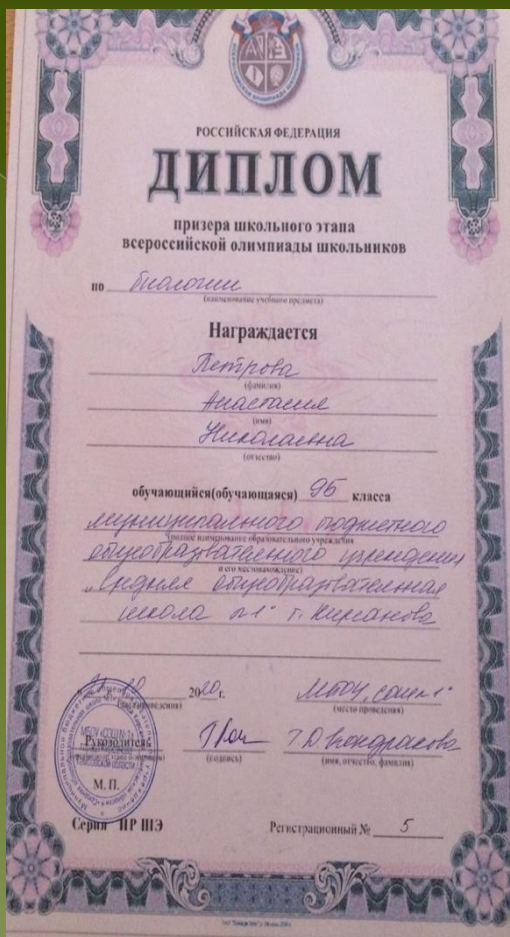 РОССИЙСКАЯ ФЕДЕРАЦИЯ
ДИПЛОМ
призера школьного этапа
всероссийской олимпиады школьников
по биологии
(наименование учебного предмета)
Награждается
Петрова
(фамилия)
Анастасия
(имя)
Николаевна
(отчество)
обучающийся(обучающаяся) 9Б класса
муниципального бюджетного
(полное наименование образовательного учреждения
общеобразовательного учреждения
и его местонахождение)
"Средняя общеобразовательная
школа №1" г. Кирсанова
2020 г.
(дата проведения)
МБОУ "СОШ №1"
(место проведения)
Руководитель
(подпись)
(имя, отчество, фамилия)
М. П.
Серия ПР ШЭ
Регистрационный № 5